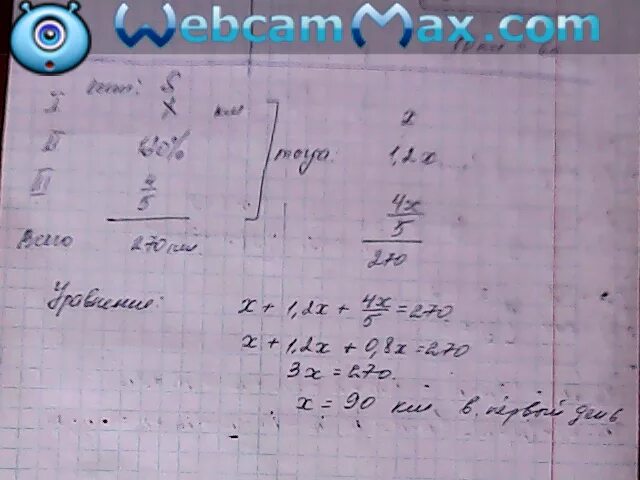 WebcamMax.com
S
I x км
II 120%
III 4/5
тогда:
x
1,2x
4x/5
270
Всего 270 км.
Уравнение: x + 1,2x + 4x/5 = 270
x + 1,2x + 0,8x = 270
3x = 270.
x = 90 км в первый день